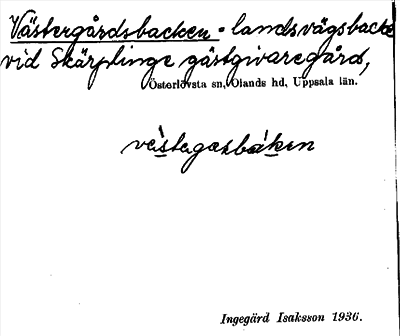 Västergårdsbacken - landsvägsbacke
vid Skärplinge gästgivaregård,
Österlövsta sn, Olands hd, Uppsala län.
Ingegärd Isaksson 1936.